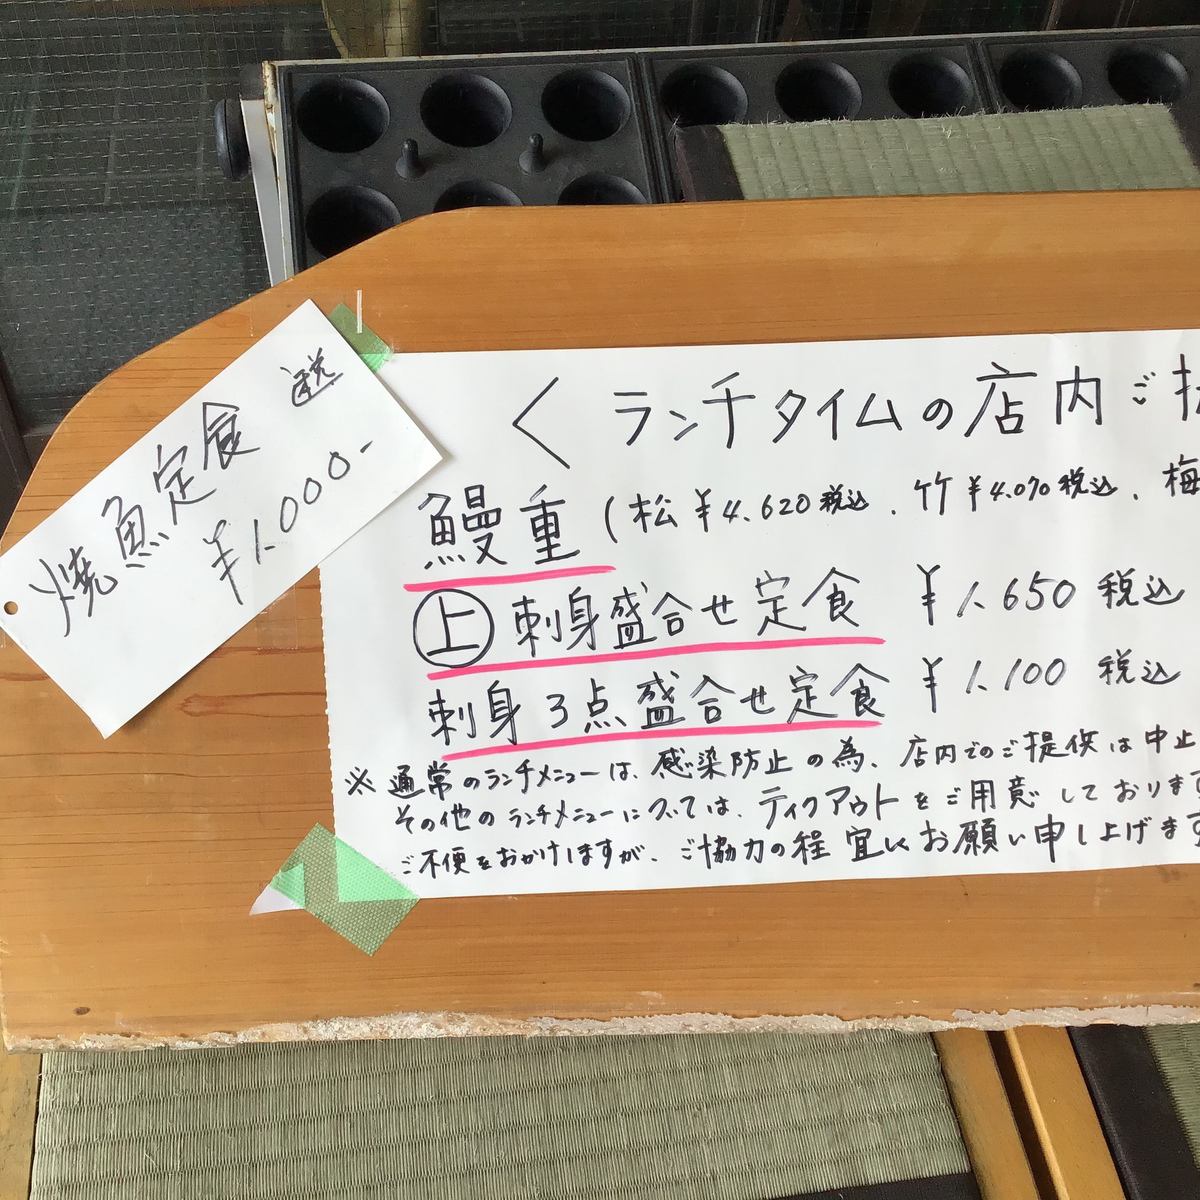 焼魚定食
¥1.000-
〈ランチタイムの店内ご
鰻重(松¥4.620税込、竹¥4.070税込、梅
上刺身盛合せ定食 ¥1.650税込
刺身3点盛合せ定食 ¥1.100税込
※通常のランチメニューは、感染防止の為、店内でのご提供は中止
その他のランチメニューについては、テイクアウトをご用意しております
ご不便をおかけしますが、ご協力の程宜しくお願い申し上げます